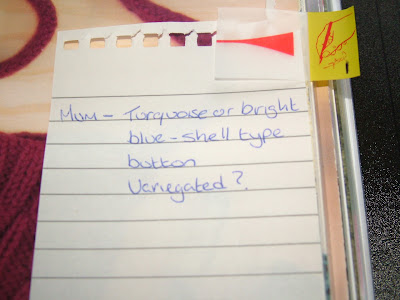 Mum - Turquoise or bright
blue-shell type
button
Variegated?